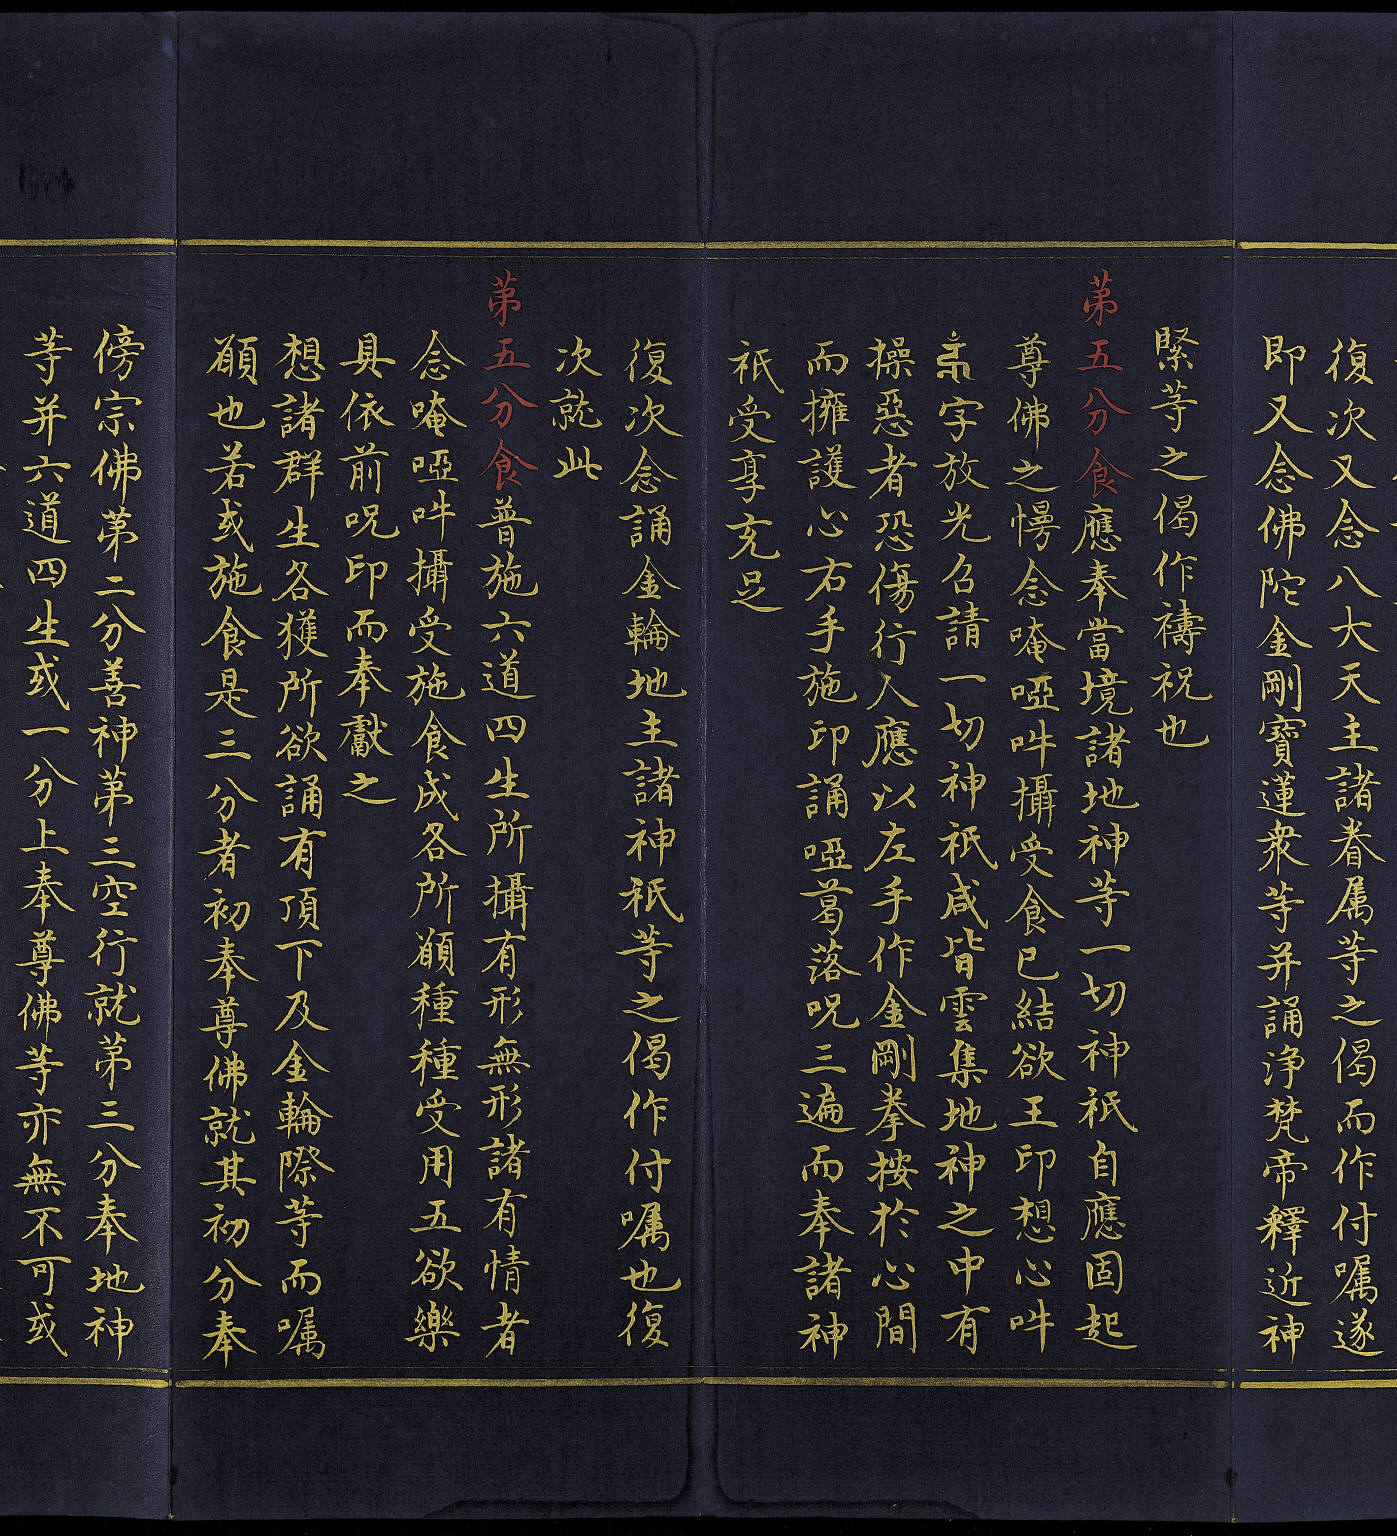 復次又念八大天主諸眷属等之偈而作付嘱遂
即又念佛陀金剛寶蓮衆等并誦浄梵帝釋近神
緊等之偈作禱祝也
第五分食應奉當境諸地神等一切神祇自應固起
尊佛之慢念唵啞吽攝受食已結欲王印想心吽
字放光召請一切神祇咸皆雲集地神之中有
操惡者恐傷行人應以左手作金剛拳按於心間
而擁護心右手施印誦啞葛落呪三遍而奉諸神
祇受享充足
復次念誦金輪地主諸神祇等之偈作付嘱也復
次就此
第五分食普施六道四生所攝有形無形諸有情者
念唵啞吽攝受施食成各所願種種受用五欲樂
具依前呪印而奉獻之
想諸群生各獲所欲誦有頂下及金輪際等而嘱
願也若或施食是三分者初奉尊佛就其初分奉
傍宗佛第二分善神第三空行就第三分奉地神
等并六道四生或一分上奉尊佛等亦無不可或